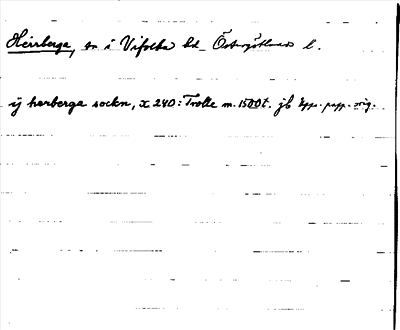 Herrberga, sn i Vifolka hd Östergötlands l.
ij herberga sockn, x 240: Trolle m. 1500t. jb Upps. papp. orig.